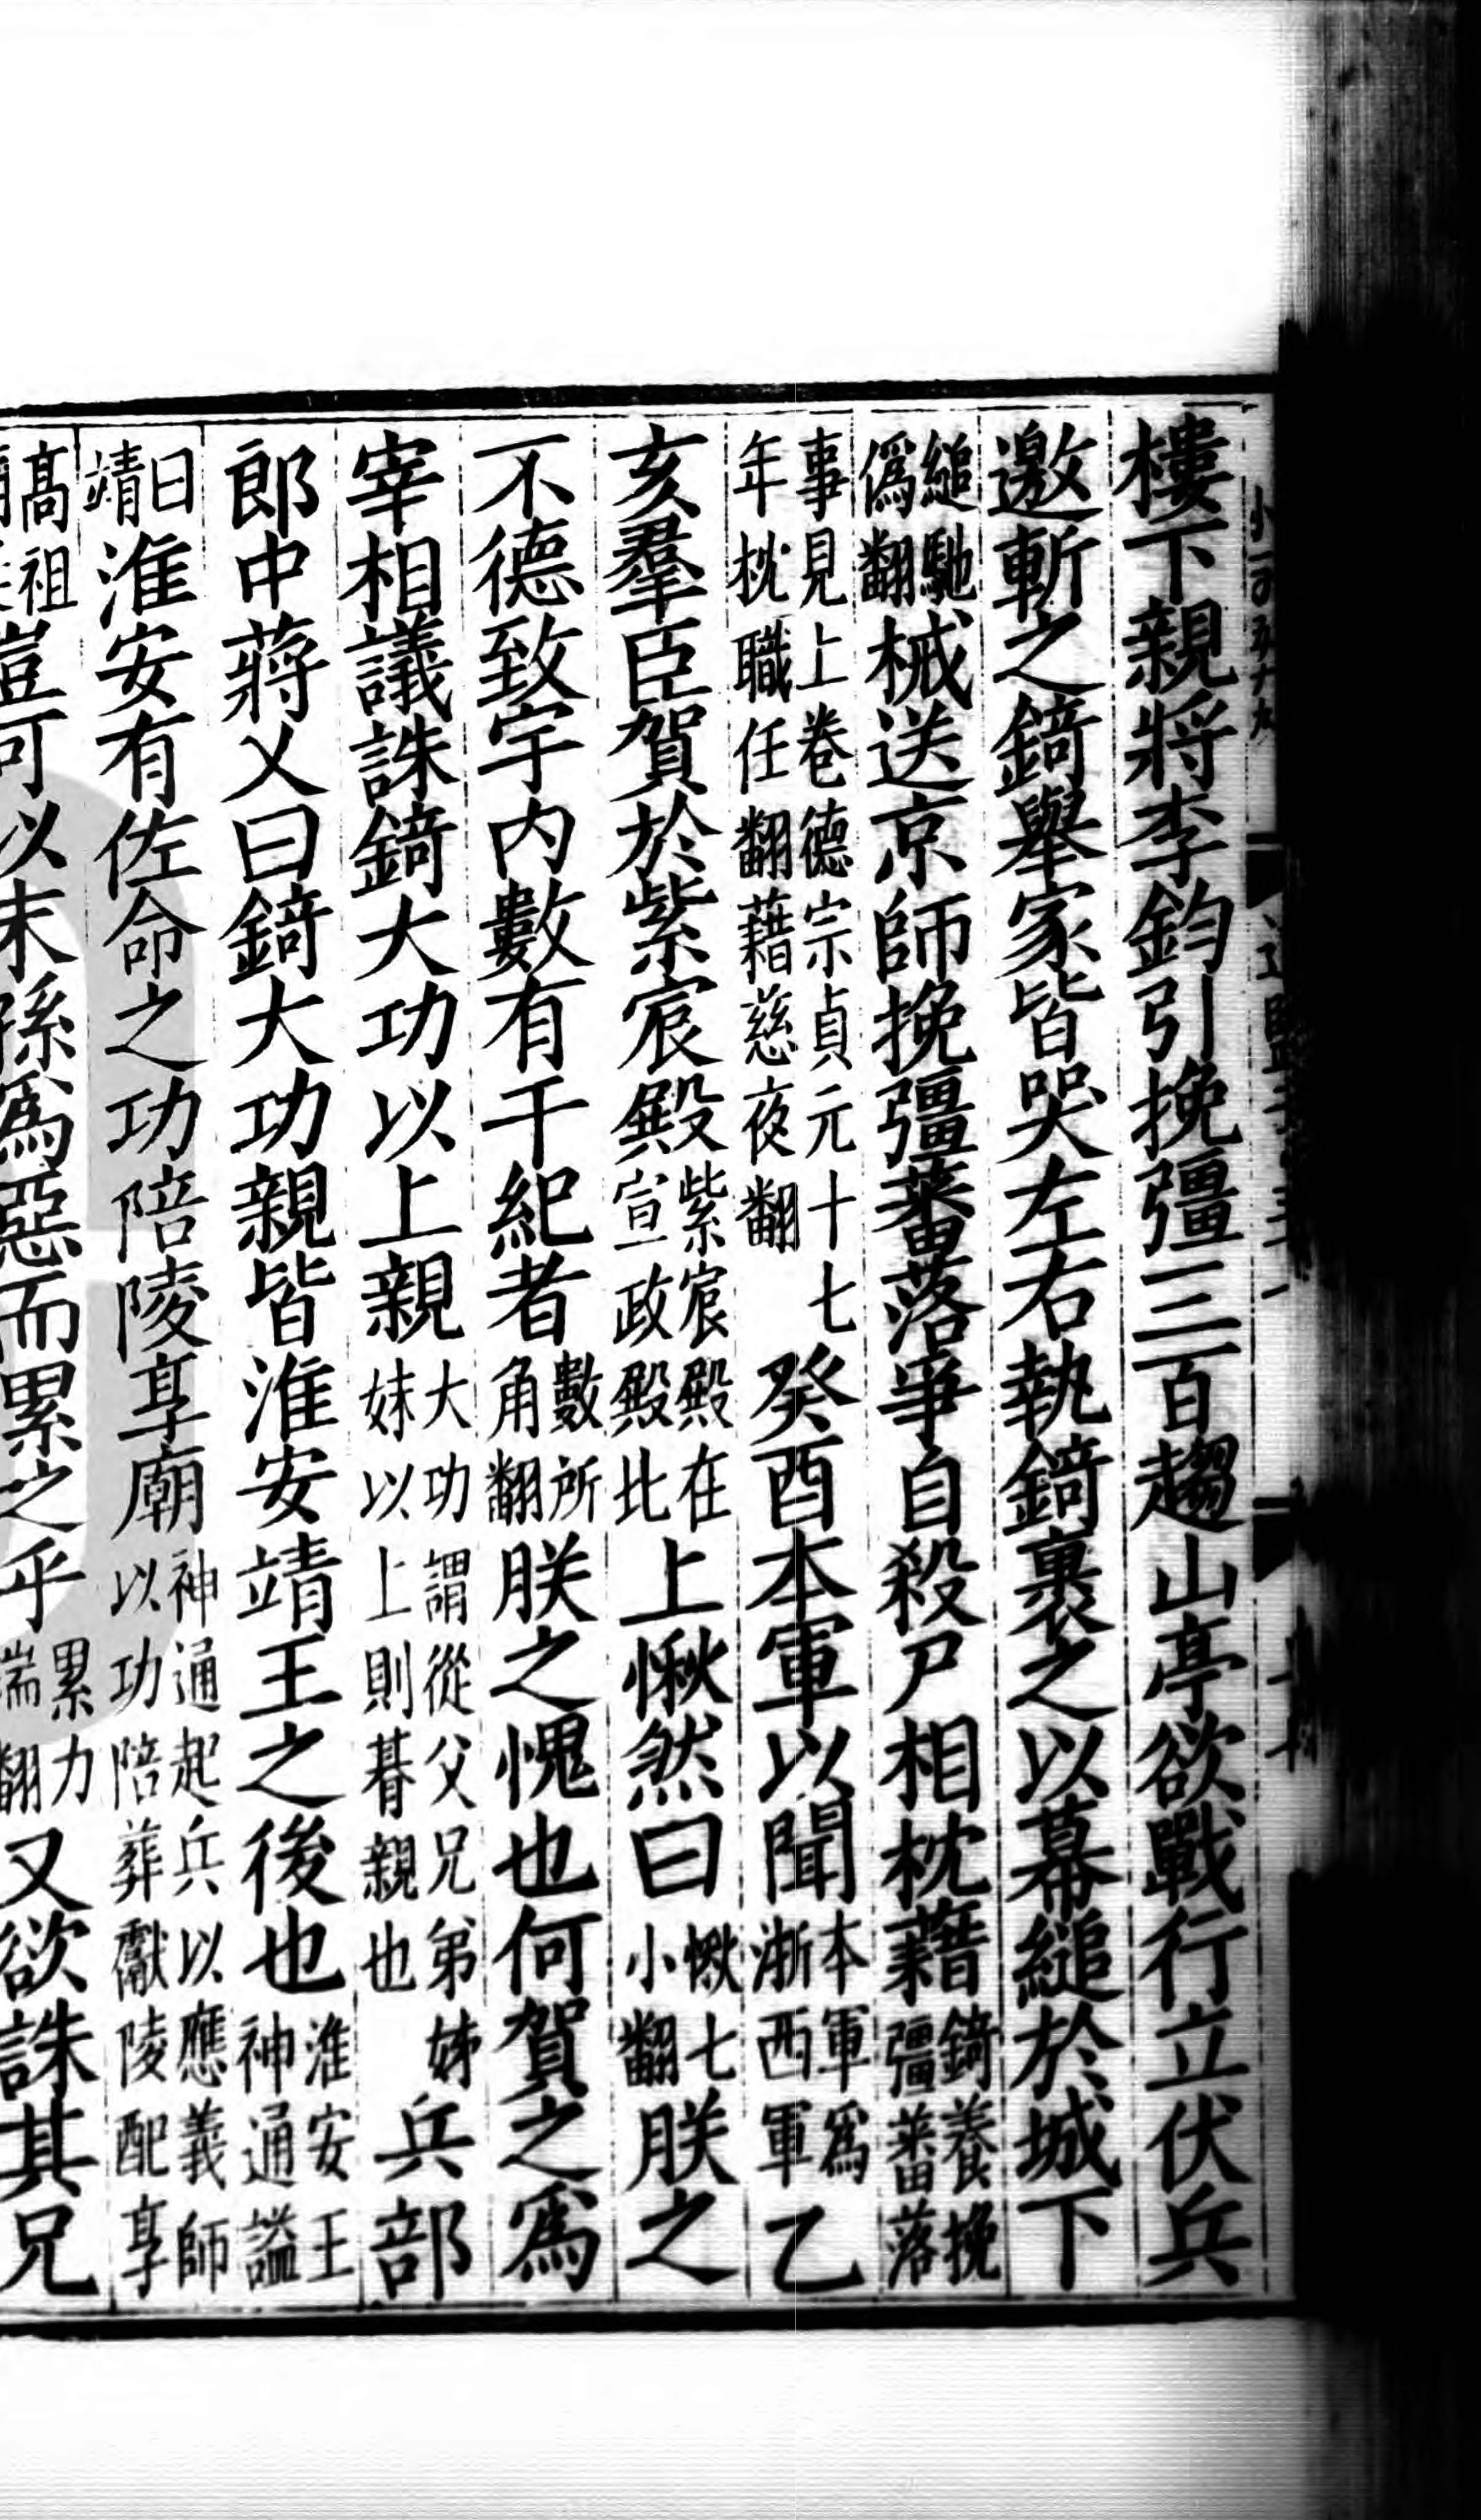 樓下親將李鈞引挽彊三百趨山亭欲戰行立伏兵
邀斬之錡舉家皆哭左右執錡裹之以幕縋於城下
縋馳偽翻械送京師挽彊蕃落爭自殺尸相枕藉錡養挽彊蕃落
事見上卷德宗貞元十七年枕職任翻藉慈夜翻癸酉本軍以聞本軍爲浙西軍乙
亥羣臣賀於紫宸殿紫宸殿在宣政殿北上愀然曰愀七小翻朕之
不德致宇內數有干紀者數所角翻朕之愧也何賀之爲
宰相議誅錡大功以上親大功謂從父兄弟姊妹以上則朞親也兵部
郎中蔣乂曰錡大功親皆淮安靖王之後也淮安王神通謚
曰靖淮安有佐命之功陪陵享廟神通起兵以應義師以功陪葬獻陵配享
高祖豈可以末孫爲惡而累之乎累力瑞翻又欲誅其兄